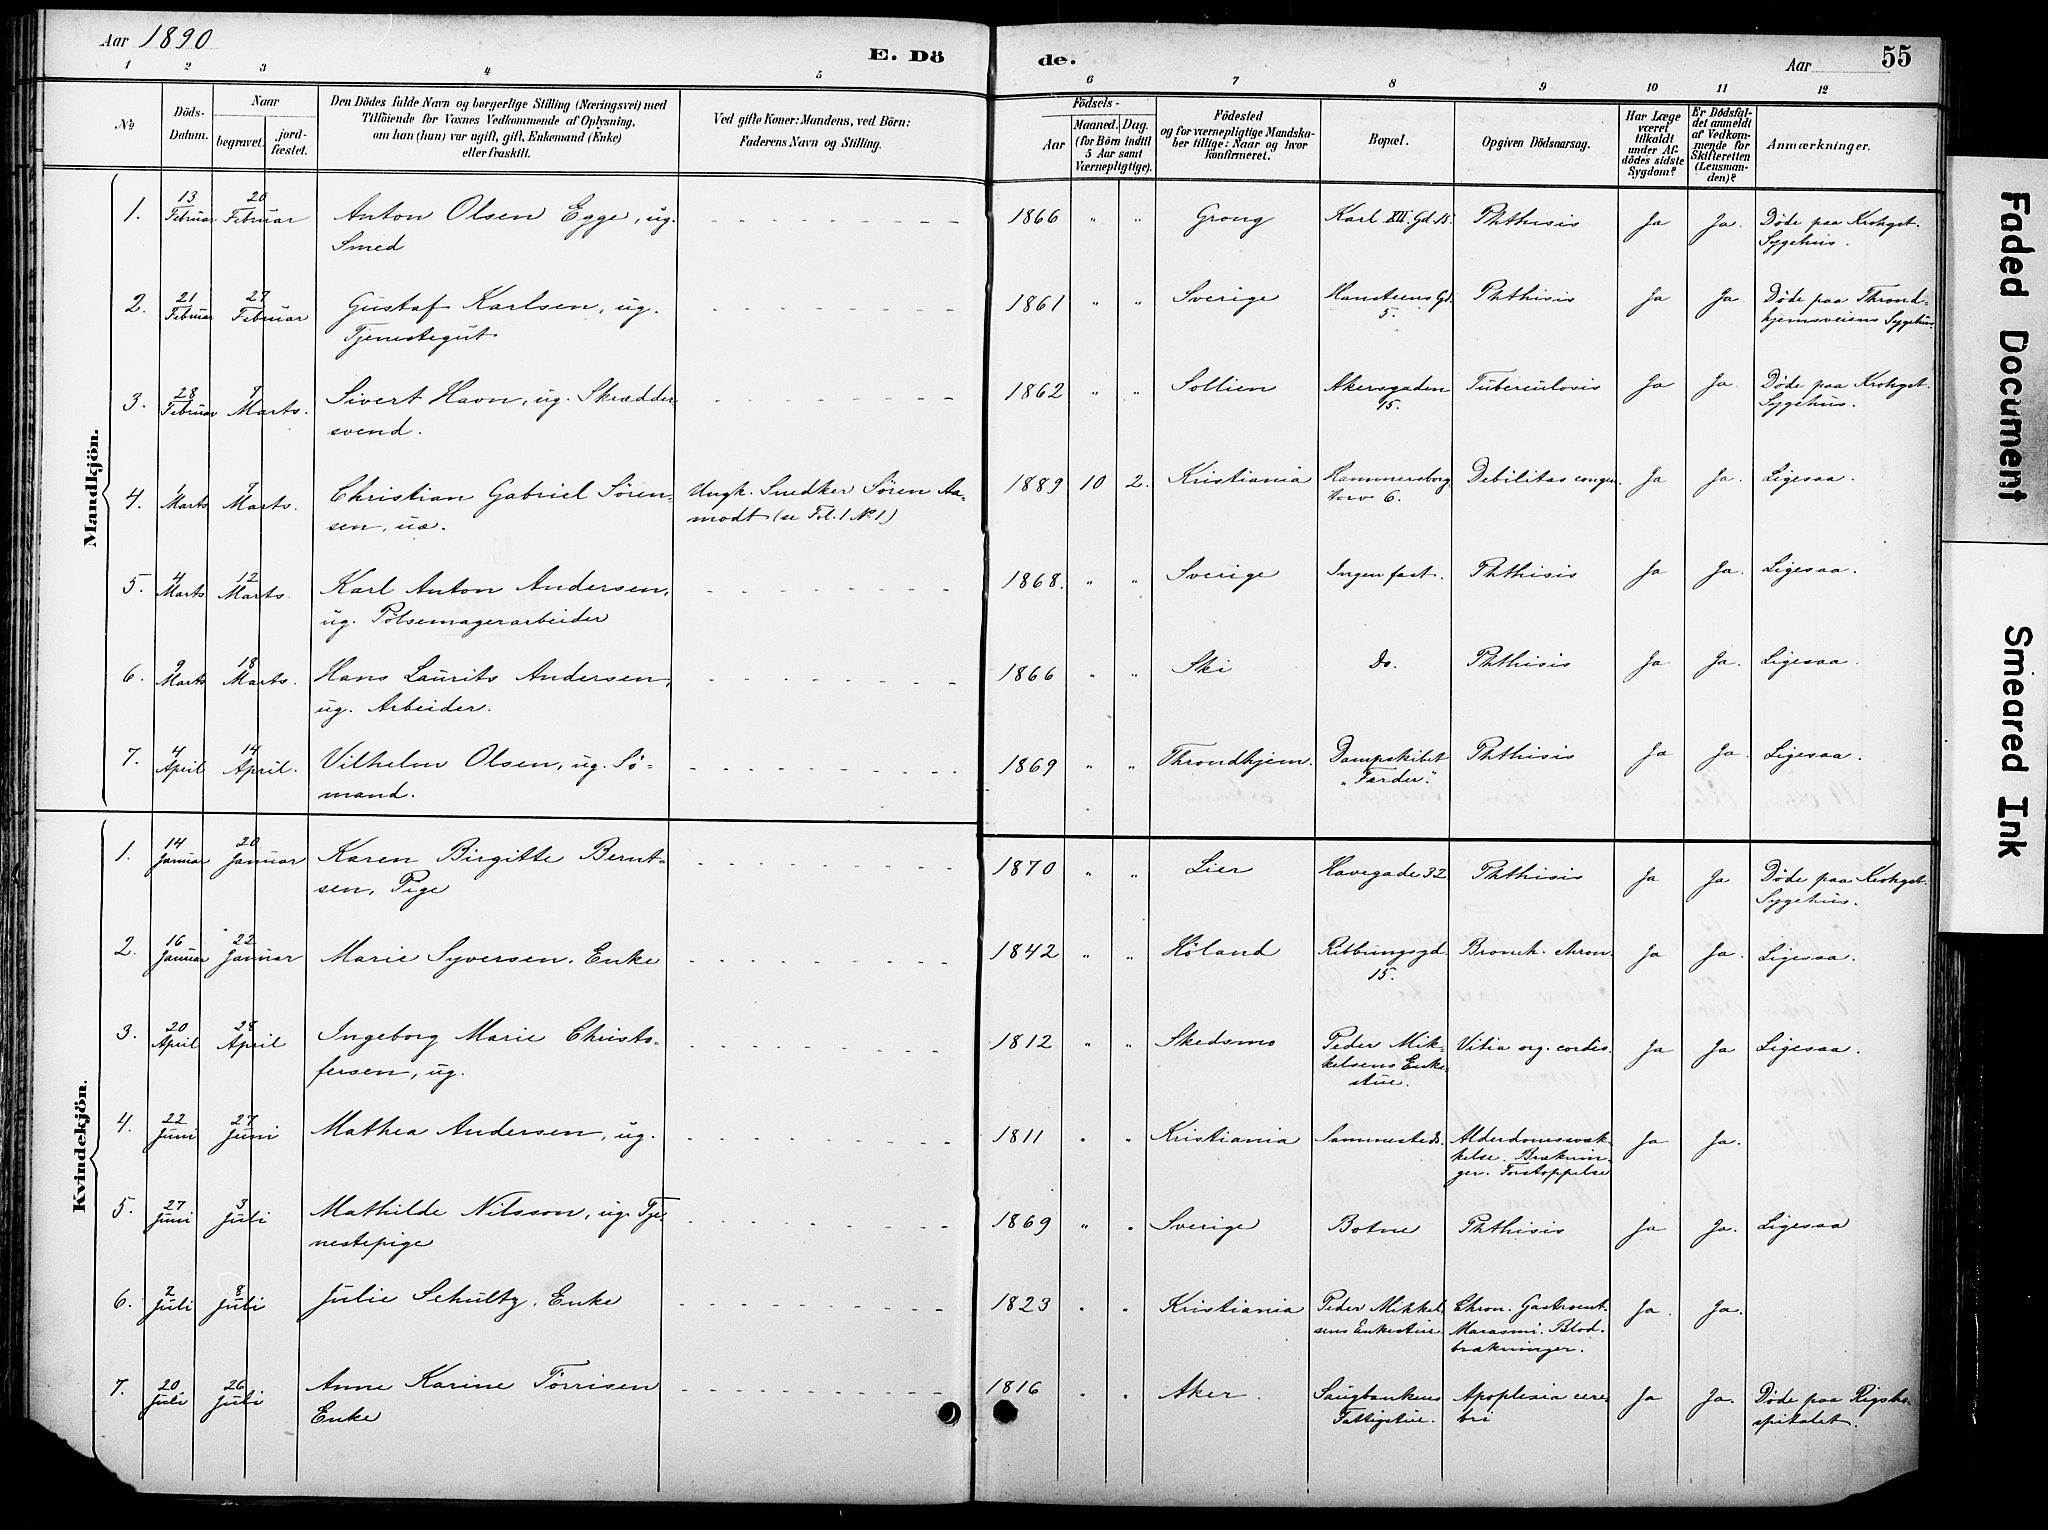 Aar 1890
E. Dö
de.
Aar
55
1 2 3 4 5 6 7 8 9 10 11 12
No
Döds-Datum.
Naar
begravet.
jord-fæstet.
Den Dödes fulde Navn og borgerlige Stilling (Næringsvei) med
Tilföiende for Voxnes Vedkommende af Oplysning,
om han (hun) var ugift, gift, Enkemand (Enke)
eller fraskilt.
Ved gifte Koner: Mandens, ved Börn:
Faderens Navn og Stilling.
Födsels-
Aar
Maaned. Dag.
(for Börn indtil
5 Aar samt
Værnepligtige).
Födested
og for værnepligtige Mandska-
ber tillige: Naar og hvor
konfirmeret.
Bopæl.
Opgiven Dödsaarsag.
Har Læge
været
tilkaldt
under Af-
dödes sidste
Sygdom?
Er Dödsfal-
det anmeldt
af Vedkom-
mende for
Skifteretten
(Lensman-
den)?
Anmærkninger.
Mandkjön.
1. 13 Februar 20 Februar Anton Olsen Egge, ug. 1866 " " Grong Karl XII. Gd 15. Phthisis Ja Ja. Döde paa Krohget.
Smed Sygehus.
2. 21 Februar 27 Februar Gustaf Karlsen, ug. 1861 " " Sverige Hansteens Gd. Phthisis Ja Ja Döde paa Thrond-
Tjenestegut 5. hjemsveiens Sygehus
3. 28 Februar 7 Marts. Sivert Havn, ug. Skrædder- 1862 " " Sollien Akersgaden Tuberculosis Ja Ja. Döde paa Krohget.
svend. 15. Sygehus.
4. 1 Marts 7 Marts. Christian Gabriel Sören- Ungk. Snedker Sören Aa- 1889 10 2. Kristiania Hammersborg Debilitas congen. Ja Ja. Ligesaa.
sen, uæ. modt (se Fol. 1 No 1) torv 6.
5. 4 Marts 12 Marts. Karl Anton Andersen, 1868. " " Sverige Ingen fast. Phthisis Ja Ja. Ligesaa.
ug. Pölsemagerarbeider
6. 9 Marts 18 Marts. Hans Laurits Andersen, 1866 " " Ski Do. Phthisis Ja Ja. Ligesaa.
ug. Arbeider.
7. 4 April 14 April. Vilhelm Olsen, ug. Sö- 1869 " " Throndhjem. Dampskibet Phthisis Ja Ja. Ligesaa.
mand. "Færder."
Kvindekjön.
1. 14 Januar 20 Januar Karen Birgitte Bernt- 1870 " " Lier Havegade 32 Phthisis Ja Ja Döde paa Krohget.
sen, Pige Sygehus.
2. 16 Januar 22 Januar Marie Syversen, Enke 1842 " " Höland Ribbungsgd. Bronch. chron. Ja Ja. Ligesaa.
15.
3. 20 April 28 April Ingeborg Marie Christo- 1812 " " Skedsmo Peder Mik- Vitia org. cordis. Ja Ja Ligesaa.
fersen, ug. kelsens Enke-
stue.
4. 22 Juni 27 Juni Mathea Andersen, ug. 1811 " " Kristiania Sammesteds. Alderdomssvæk- Ja Ja.
kelse. Bræknin-
ger. Forstoppelse
5. 27 Juni 3 Juli Mathilde Nilsson, ug. Tje- 1869 " " Sverige Botne Phthisis Ja Ja. Ligesaa
nestepige
6. 2 Juli 8 Juli Julie Schultz, Enke 1823 " " Kristiania Peder Mikkel- Chron. Gastroent. Ja. Ja.
sens Enkestue. Marasmi. Blod-
brækninger.
7. 20 Juli 26 Juli Anne Karine Törrisen 1816 " " Aker. Saugbankens Apoplexia cere- Ja Ja. Döde paa Rigsho-
Enke Fattigstue. bri spitalet.
Faded Document
Smeared Ink